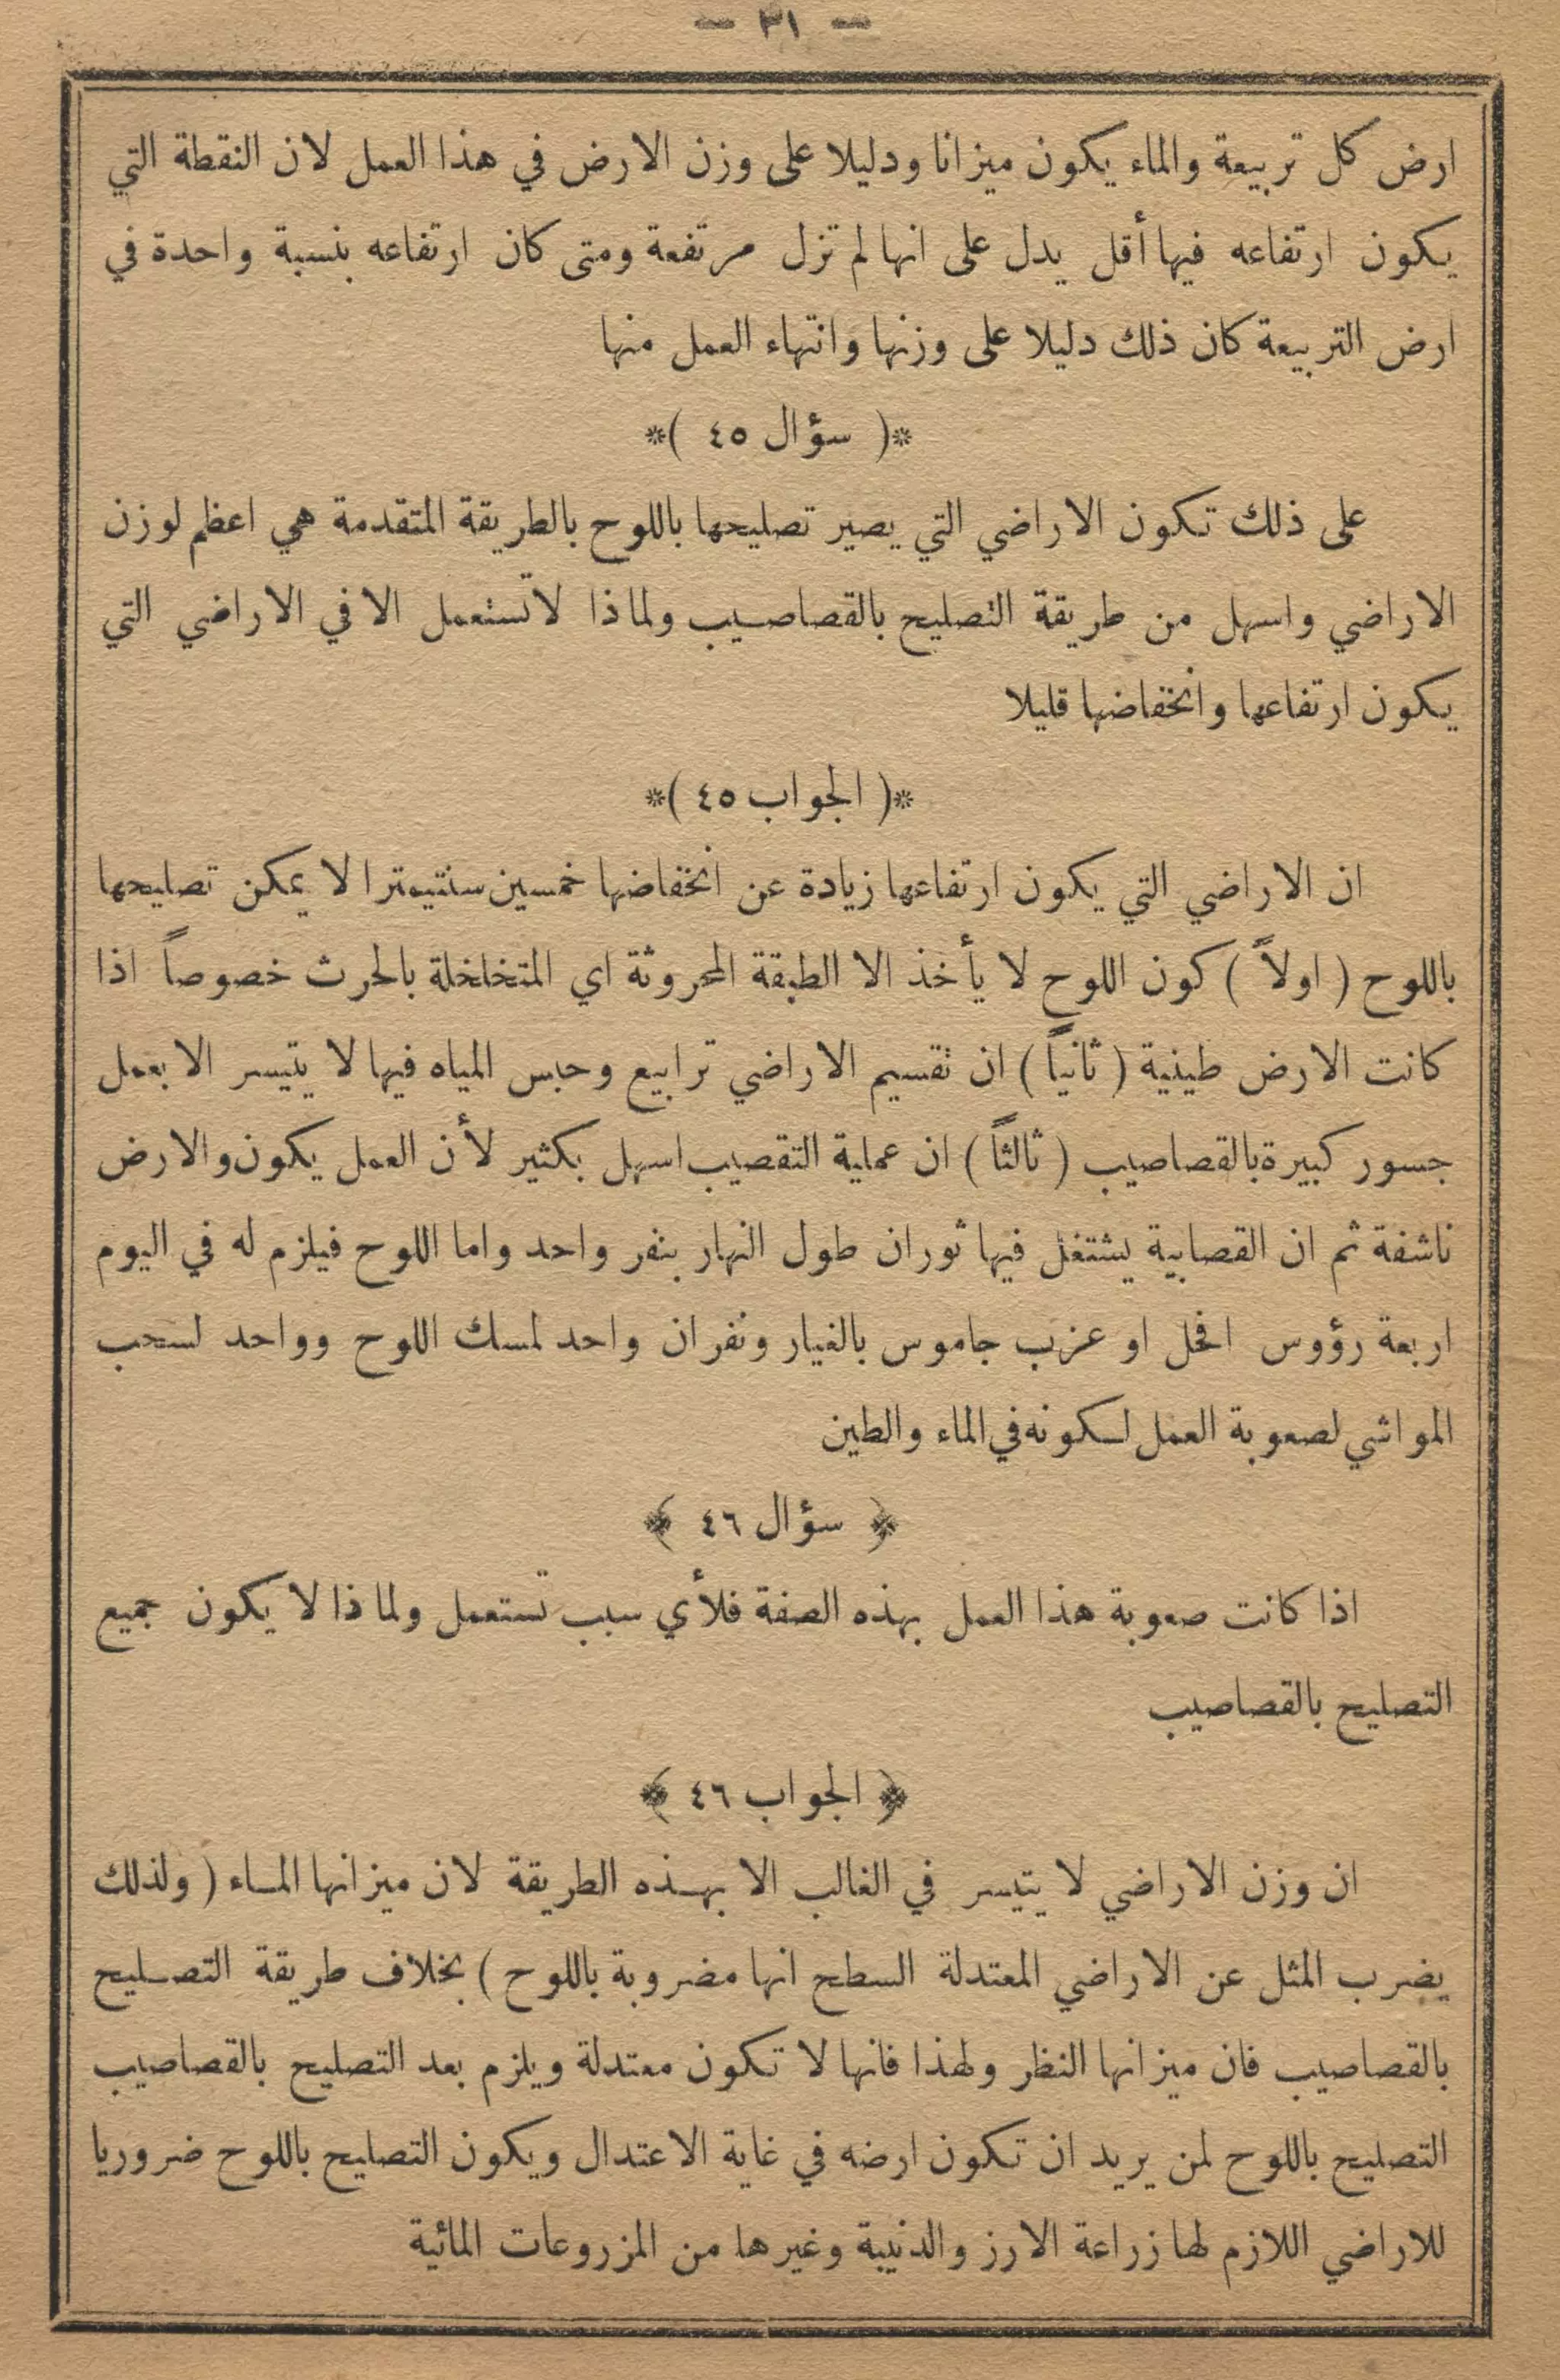 — ٣١ —
ارض كل تربيعة والماء يكون ميزانا ودليلا على وزن الارض في هذا العمل لان النقطة التي
يكون ارتفاعه فيها أقل يدل على انها لم تزل مرتفعة ومتى كان ارتفاعه بنسبة واحدة في
ارض التربيعة كان ذلك دليلا على وزنها وانتهاء العمل منها
*( سؤال ٤٥ )*
على ذلك تكون الاراضي التي يصير تصليحها باللوح بالطريقة المتقدمة هي اعظم لوزن
الاراضي واسهل من طريقة التصليح بالقصاصيب ولماذا لا تستعمل الا في الاراضي التي
يكون ارتفاعها وانخفاضها قليلا
*( الجواب ٤٥ )*
ان الاراضي التي يكون ارتفاعها زيادة عن انخفاضها خمسين سنتيمترا لا يمكن تصليحها
باللوح ( اولاً ) كون اللوح لا يأخذ الا الطبقة المحروثة اي المتخلخلة بالحرث خصوصاً اذا
كانت الارض طينية ( ثانياً ) ان تقسيم الاراضي ترابيع وحبس المياه فيها لا يتيسر الا بعمل
جسور كبيرة بالقصاصيب ( ثالثاً ) ان عملية التقصيب اسهل بكثير لأن العمل يكون والارض
ناشفة ثم ان القصابية يشتغل فيها ثوران طول النهار بنفر واحد واما اللوح فيلزم له في اليوم
اربعة رؤوس افحل او عزب جاموس بالغيار ونفران واحد لمسك اللوح وواحد لسحب
المواشي لصعوبة العمل لكونه في الماء والطين
﴿ سؤال ٤٦ ﴾
اذا كانت صعوبة هذا العمل بهذه الصفة فلأي سبب تستعمل ولماذا لا يكون جميع
التصليح بالقصاصيب
﴿ الجواب ٤٦ ﴾
ان وزن الاراضي لا يتيسر في الغالب الا بهذه الطريقة لان ميزانها الماء ( ولذلك
يضرب المثل عن الاراضي المعتدلة السطح انها مضروبة باللوح ) بخلاف طريقة التصليح
بالقصاصيب فان ميزانها النظر ولهذا فانها لا تكون معتدلة ويلزم بعد التصليح بالقصاصيب
التصليح باللوح لمن يريد ان تكون ارضه في غاية الاعتدال ويكون التصليح باللوح ضروريا
للاراضي اللازم لها زراعة الارز والدنيبة وغيرها من المزروعات المائية